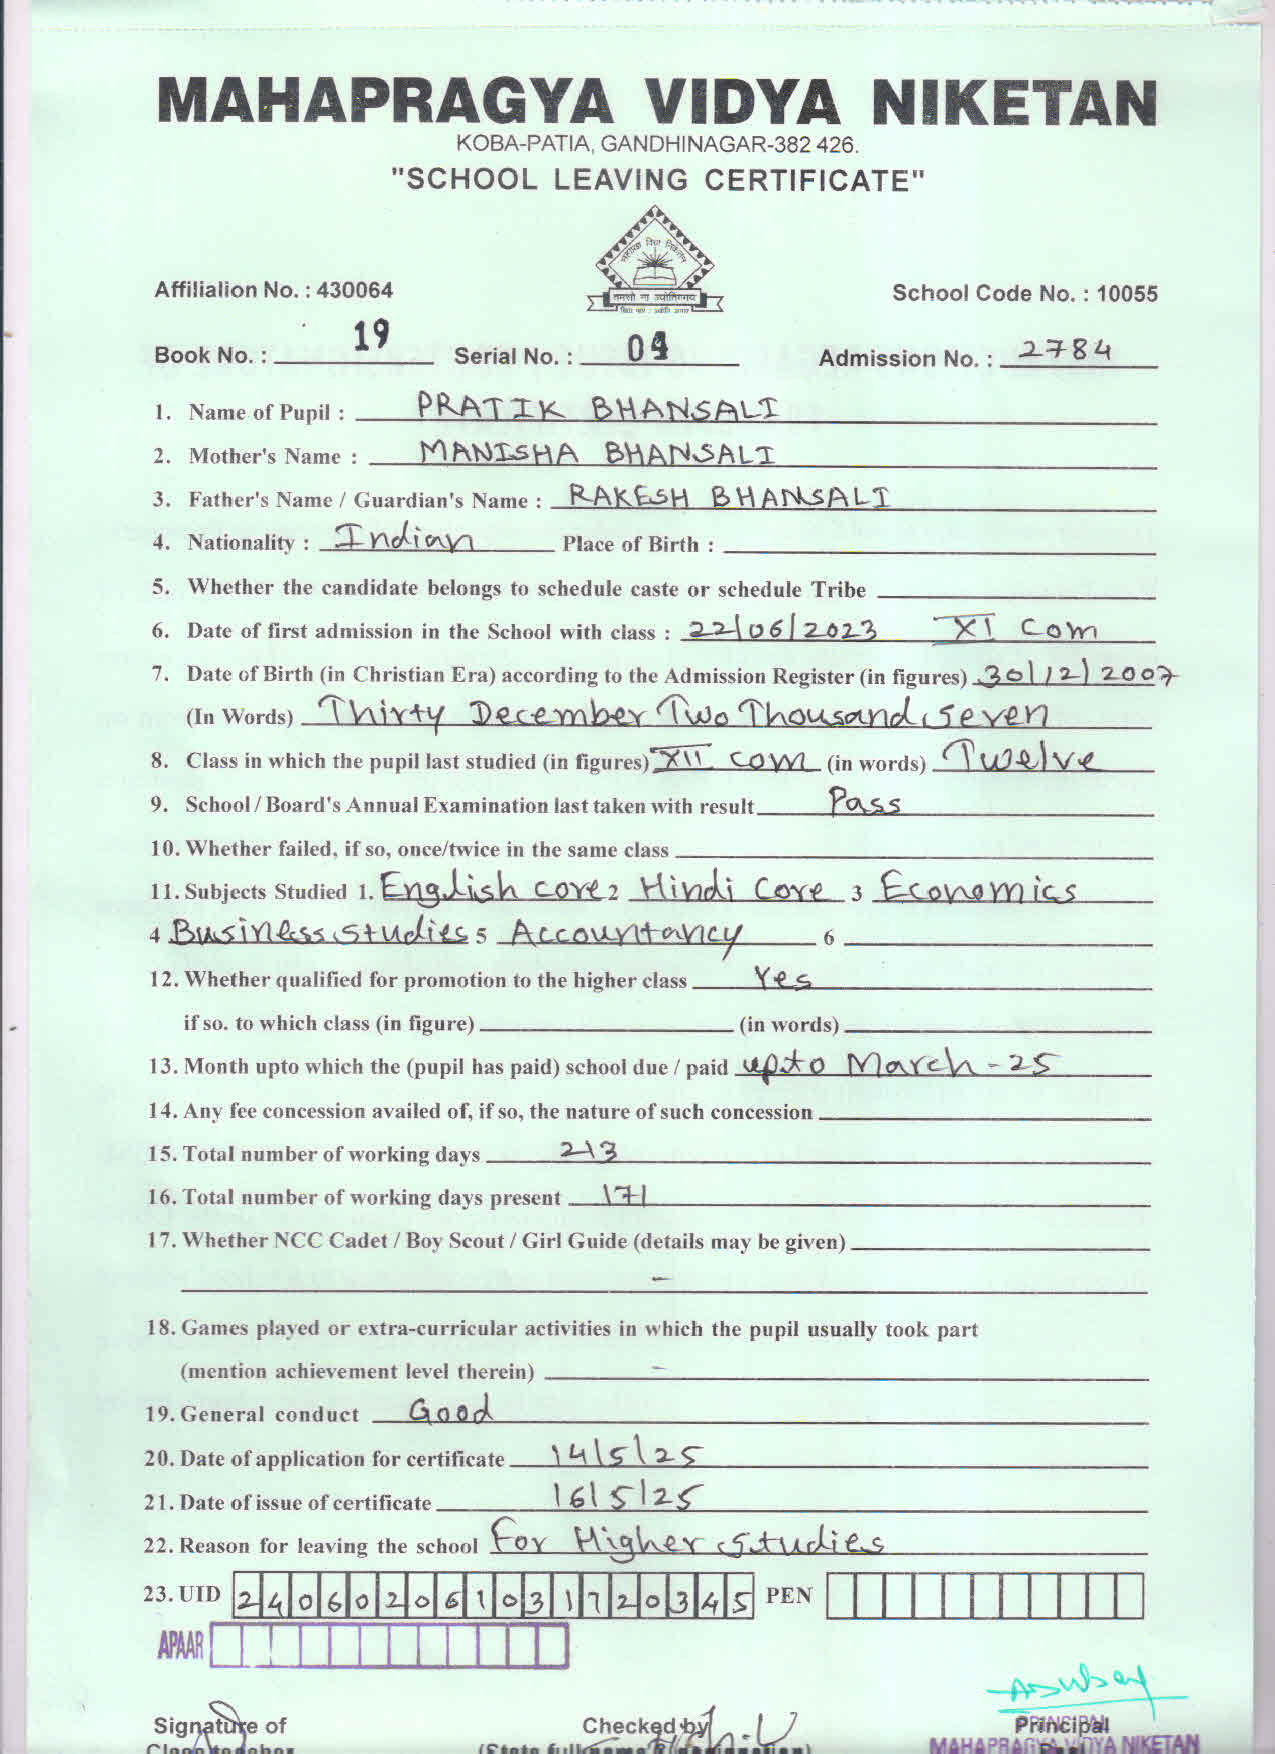 MAHAPRAGYA VIDYA NIKETAN
KOBA-PATIA, GANDHINAGAR-382 426.
"SCHOOL LEAVING CERTIFICATE"
महाप्रज्ञ विद्या निकेतन
तमसो मा ज्योतिर्गमय
Affilialion No. : 430064
School Code No. : 10055
Book No. : 19 Serial No. : 04 Admission No. : 2784
1. Name of Pupil : PRATIK BHANSALI
2. Mother's Name : MANISHA BHANSALI
3. Father's Name / Guardian's Name : RAKESH BHANSALI
4. Nationality : Indian Place of Birth :
5. Whether the candidate belongs to schedule caste or schedule Tribe
6. Date of first admission in the School with class : 22/06/2023 XI Com
7. Date of Birth (in Christian Era) according to the Admission Register (in figures) 30/12/2007
(In Words) Thirty December Two Thousand Seven
8. Class in which the pupil last studied (in figures) XII com (in words) Twelve
9. School / Board's Annual Examination last taken with result Pass
10. Whether failed, if so, once/twice in the same class
11. Subjects Studied 1. English core 2 Hindi Core 3 Economics
4 Business Studies 5 Accountancy 6
12. Whether qualified for promotion to the higher class Yes
if so. to which class (in figure) (in words)
13. Month upto which the (pupil has paid) school due / paid upto March-25
14. Any fee concession availed of, if so, the nature of such concession
15. Total number of working days 213
16. Total number of working days present 171
17. Whether NCC Cadet / Boy Scout / Girl Guide (details may be given)
–
18. Games played or extra-curricular activities in which the pupil usually took part
(mention achievement level therein) –
19. General conduct Good
20. Date of application for certificate 14/5/25
21. Date of issue of certificate 16/5/25
22. Reason for leaving the school For Higher Studies
23. UID 240602061031720345 PEN
APAAR
Signature of Checked by Principal
PRINCIPAL
Class teacher (State full name & designation)
MAHAPRAGYA VIDYA NIKETAN